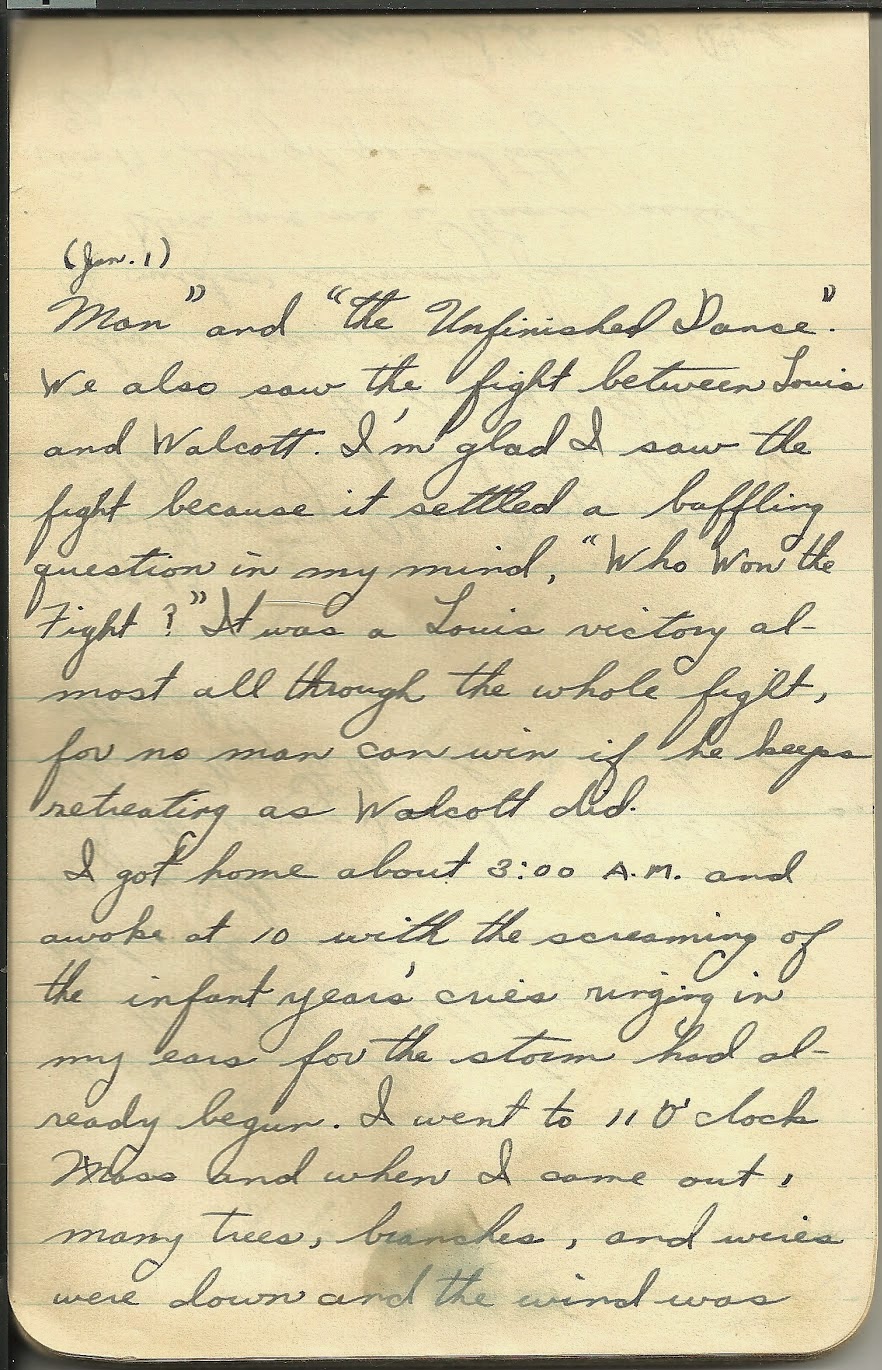 (Jan. 1)
Man" and "the Unfinished Dance".
We also saw the fight between Louis
and Walcott. I'm glad I saw the
fight because it settled a baffling
question in my mind, "Who Won the
Fight?" It was a Louis victory al-
most all through the whole fight,
for no man can win if he keeps
retreating as Walcott did.
I got home about 3:00 A.M. and
awoke at 10 with the screaming of
the infant years' cries ringing in
my ears for the storm had al-
ready begun. I went to 11 O'clock
Mass and when I came out,
many trees, branches, and wires
were down and the wind was